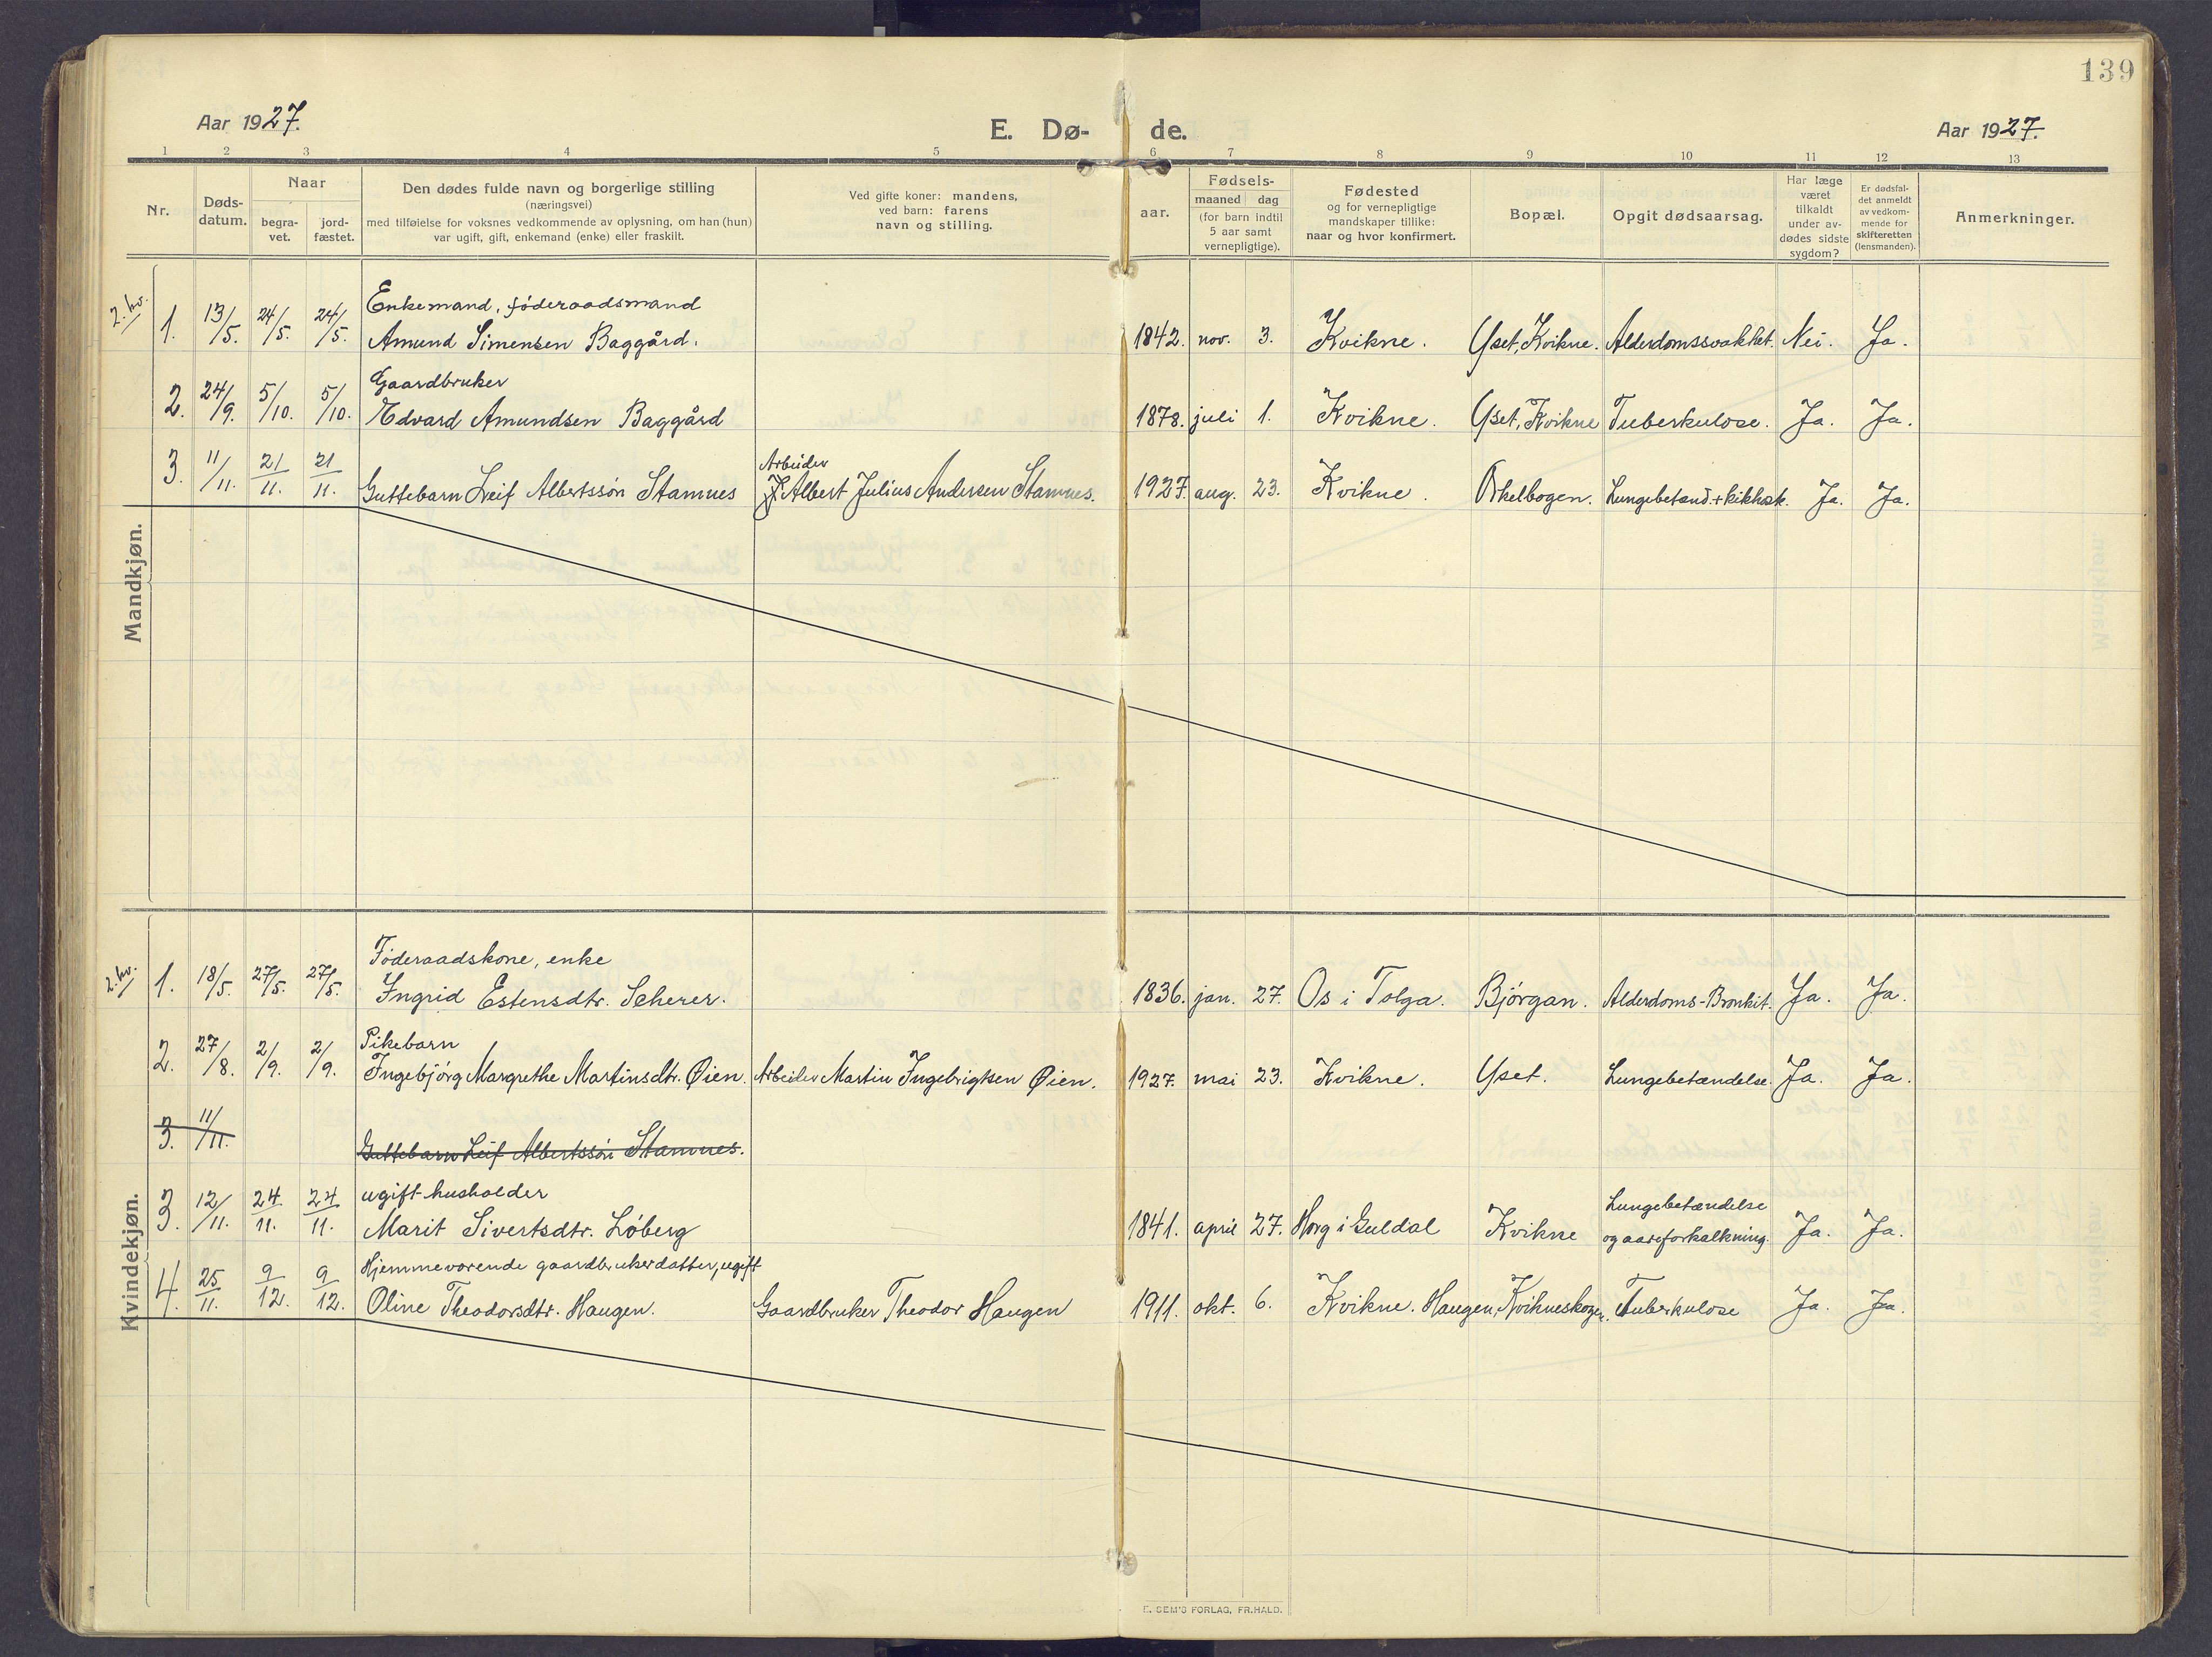 139
Aar 1927.
E. Dø- de.
Aar 1927.
1 2 3 4 5 6 7 8 9 10 11 12 13
Nr.
Døds-
datum.
Naar
begra-
vet.
jord-
fæstet.
Den dødes fulde navn og borgerlige stilling
(næringsvei)
med tilføielse for voksnes vedkommende av oplysning, om han (hun)
var ugift, gift, enkemand (enke) eller fraskilt.
Ved gifte koner: mandens,
ved barn: farens
navn og stilling.
Fødsels-
aar.
maaned dag
(for barn indtil
5 aar samt
vernepligtige).
Fødested
og for vernepligtige
mandskaper tillike:
naar og hvor konfirmert.
Bopæl.
Opgit dødsaarsag.
Har læge
været
tilkaldt
under av-
dødes sidste
sygdom?
Er dødsfal-
det anmeldt
av vedkom-
mende for
skifteretten
(lensmanden).
Anmerkninger.
Mandkjøn.
2. hv.
Enkemand, føderaadsmand
1. 13/5. 24/5. 24/5. Amund Simensen Baggård. 1842. nov. 3. Kvikne. Yset, Kvikne. Alderdomssvakhet. Nei. Ja.
Gaardbruker
2. 24/9. 5/10. 5/10. Edvard Amundsen Baggård 1878. juli 1. Kvikne. Yset, Kvikne Tuberkulose. Ja. Ja.
Arbeider
3. 11/11. 21/11. 21/11. Guttebarn Leif Albertssøn Stamnes Albert Julius Andersen Stamnes. 1927. aug. 23. Kvikne. Orkelbogen. Lungebetænd. + kikhost. Ja. Ja.
Kvindekjøn.
2. hv.
Føderaadskone, enke
1. 18/5. 27/5. 27/5. Ingrid Estensdtr. Scherer. 1836. jan. 27. Os i Tolga. Bjørgan. Alderdoms-Bronkit. Ja. Ja.
Pikebarn
2. 27/8. 2/9. 2/9. Ingebjørg Margrethe Martinsdtr. Øien. Arbeider Martin Ingebrigtsen Øien. 1927. mai 23. Kvikne. Yset. Lungebetændelse. Ja. Ja.
3. 11/11. Guttebarn Leif Albertssøn Stamnes.
ugift husholder
Lungebetændelse
3. 12/11. 24./11. 24./11. Marit Sivertsdtr. Løberg 1841. april 27. Horg i Guldal Kvikne og aareforkalkning. Ja. Ja.
Hjemmeværende gaardbrukerdatter, ugift
4. 25/11. 9/12. 9/12. Oline Theodorsdtr. Haugen. Gaardbruker Theodor Haugen 1911. okt. 6. Kvikne. Haugen, Kvikneskogen. Tuberkulose Ja. Ja.
E. SEM'S FORLAG, FR.HALD.